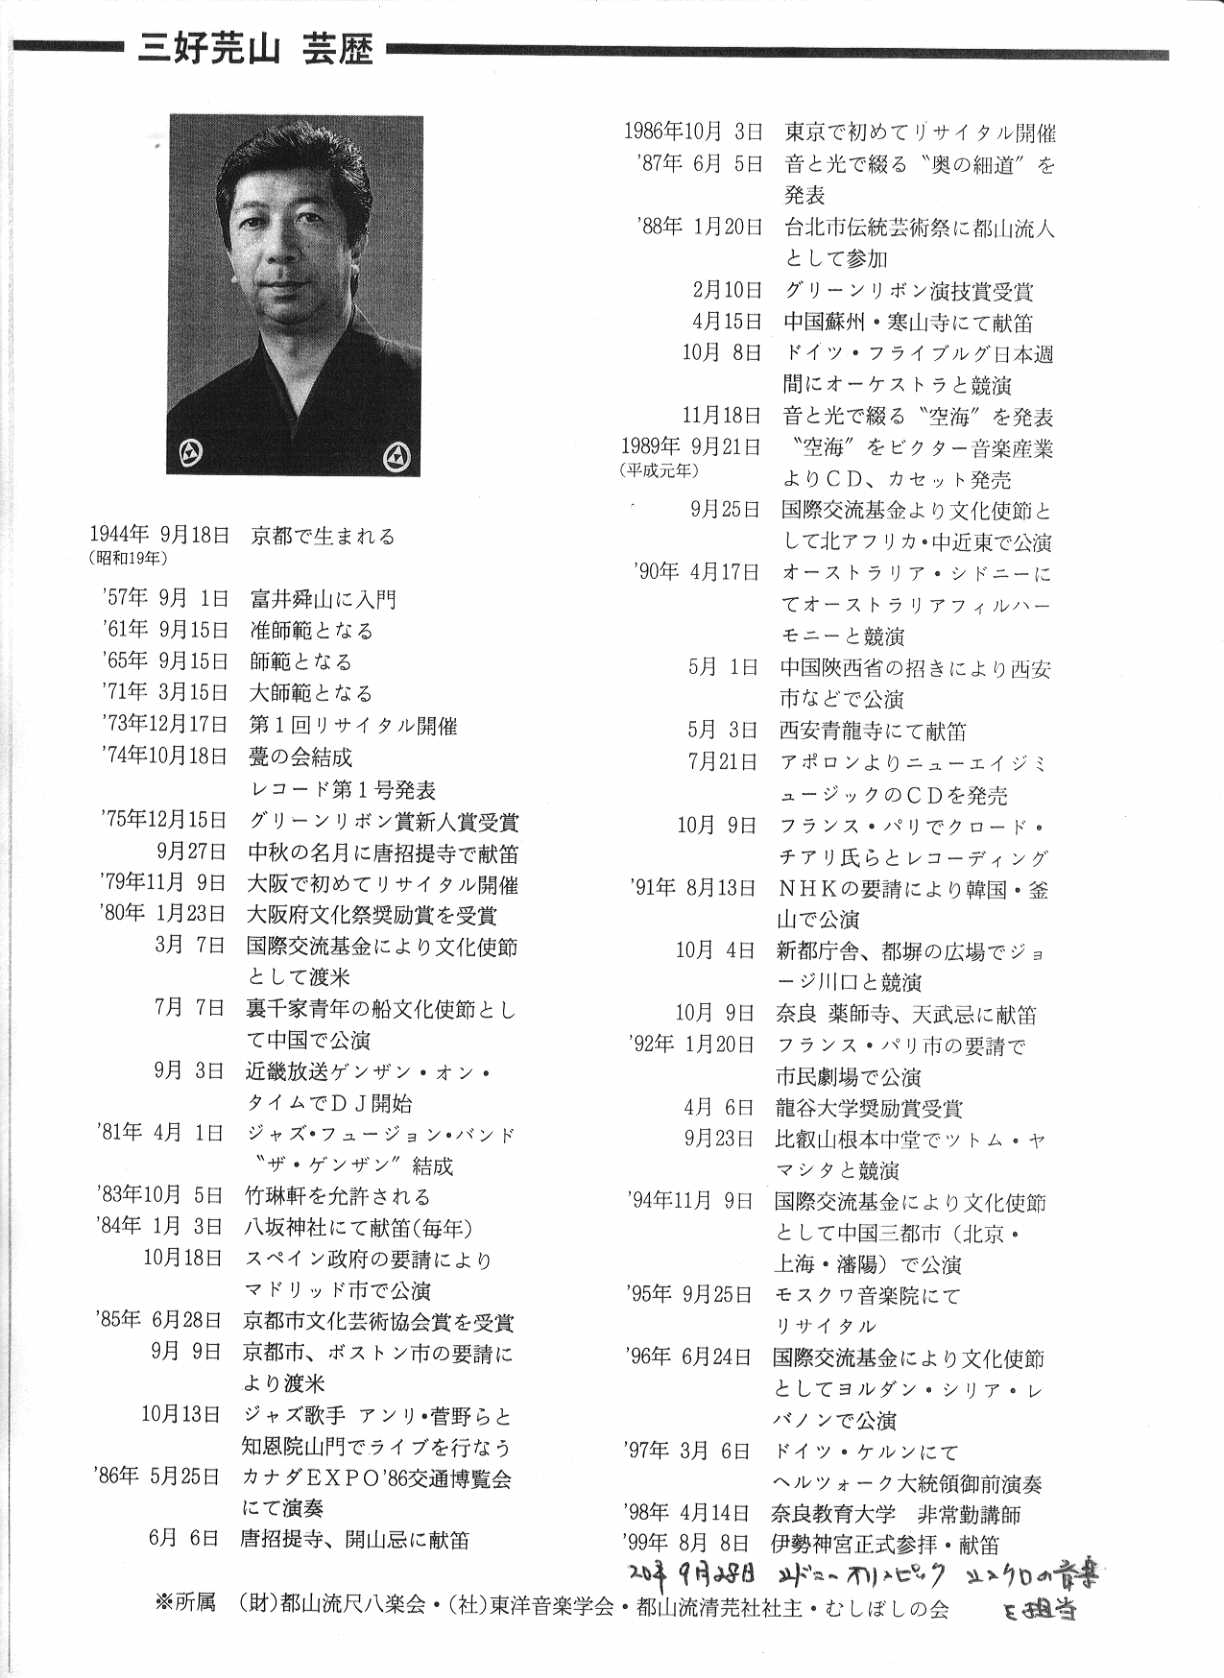 三好芫山 芸歴
1944年 9月18日 京都で生まれる
(昭和19年)
'57年 9月 1日 富井舜山に入門
'61年 9月15日 准師範となる
'65年 9月15日 師範となる
'71年 3月15日 大師範となる
'73年12月17日 第1回リサイタル開催
'74年10月18日 甍の会結成
レコード第1号発表
'75年12月15日 グリーンリボン賞新人賞受賞
9月27日 中秋の名月に唐招提寺で献笛
'79年11月 9日 大阪で初めてリサイタル開催
'80年 1月23日 大阪府文化祭奨励賞を受賞
3月 7日 国際交流基金により文化使節
として渡米
7月 7日 裏千家青年の船文化使節とし
て中国で公演
9月 3日 近畿放送ゲンザン・オン・
タイムでDJ開始
'81年 4月 1日 ジャズ・フュージョン・バンド
〝ザ・ゲンザン〞結成
'83年10月 5日 竹琳軒を允許される
'84年 1月 3日 八坂神社にて献笛(毎年)
10月18日 スペイン政府の要請により
マドリッド市で公演
'85年 6月28日 京都市文化芸術協会賞を受賞
9月 9日 京都市、ボストン市の要請に
より渡米
10月13日 ジャズ歌手 アンリ・菅野らと
知恩院山門でライブを行なう
'86年 5月25日 カナダEXPO'86交通博覧会
にて演奏
6月 6日 唐招提寺、開山忌に献笛
1986年10月 3日 東京で初めてリサイタル開催
'87年 6月 5日 音と光で綴る〝奥の細道〞を
発表
'88年 1月20日 台北市伝統芸術祭に都山流人
として参加
2月10日 グリーンリボン演技賞受賞
4月15日 中国蘇州・寒山寺にて献笛
10月 8日 ドイツ・フライブルグ日本週
間にオーケストラと競演
11月18日 音と光で綴る〝空海〞を発表
1989年 9月21日 〝空海〞をビクター音楽産業
(平成元年)
よりCD、カセット発売
9月25日 国際交流基金より文化使節と
して北アフリカ・中近東で公演
'90年 4月17日 オーストラリア・シドニーに
てオーストラリアフィルハー
モニーと競演
5月 1日 中国陝西省の招きにより西安
市などで公演
5月 3日 西安青龍寺にて献笛
7月21日 アポロンよりニューエイジミ
ュージックのCDを発売
10月 9日 フランス・パリでクロード・
チアリ氏らとレコーディング
'91年 8月13日 NHKの要請により韓国・釜
山で公演
10月 4日 新都庁舎、都塀の広場でジョ
ージ川口と競演
10月 9日 奈良 薬師寺、天武忌に献笛
'92年 1月20日 フランス・パリ市の要請で
市民劇場で公演
4月 6日 龍谷大学奨励賞受賞
9月23日 比叡山根本中堂でツトム・ヤ
マシタと競演
'94年11月 9日 国際交流基金により文化使節
として中国三都市（北京・
上海・瀋陽）で公演
'95年 9月25日 モスクワ音楽院にて
リサイタル
'96年 6月24日 国際交流基金により文化使節
としてヨルダン・シリア・レ
バノンで公演
'97年 3月 6日 ドイツ・ケルンにて
ヘルツォーク大統領御前演奏
'98年 4月14日 奈良教育大学 非常勤講師
'99年 8月 8日 伊勢神宮正式参拝・献笛
9月28日 シドニーオリンピック シンクロの音楽
を担当
※所属 (財)都山流尺八楽会・(社)東洋音楽学会・都山流清芫社社主・むしぼしの会